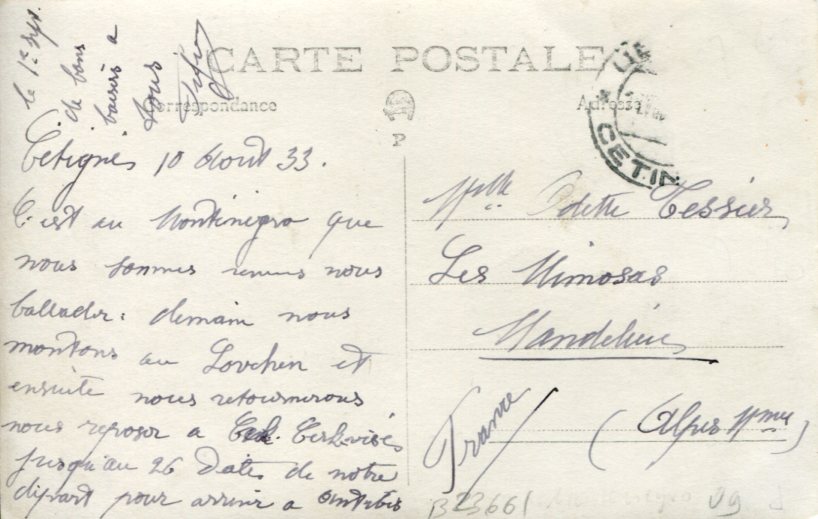 CARTE POSTALE
Correspondance
Adresse
P
CETIN
Cétignés 10 Août 33.
C'est au Montinégro que
nous sommes venus nous
ballader: demain nous
montons au Lovchen et
ensuite nous retournerons
nous reposer a
jusqu'au 26 Date de notre
départ pour arriver a Antibes
le 1er Sept.
de bons
baisers a
tous
Melle Odette Tessier
Les Mimosas
Mandelieu
(Alpes Mmes)
France
B23661